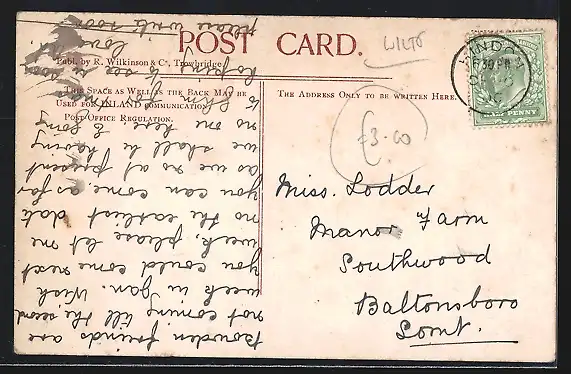 POST CARD.
WILTS
Publ. by R. Wilkinson & Co, Trowbridge.
This Space as Well as the Back May be
Used for INLAND communication.
Post Office Regulation.
The Address Only to be Written Here.
HINDON
6 30 PM
10
HALF PENNY
£3-00
Miss. Lodder
Manor Farm
Southwood
Baltonsboro
Somt.
Bowden friends are
not coming till the second
week in Jan. Wish
you could come next
week, please let me
no the earliest date
you can come, as far
as we no at present
we shall be having
no one here to long
to
Hoping to see u
love
please write soon